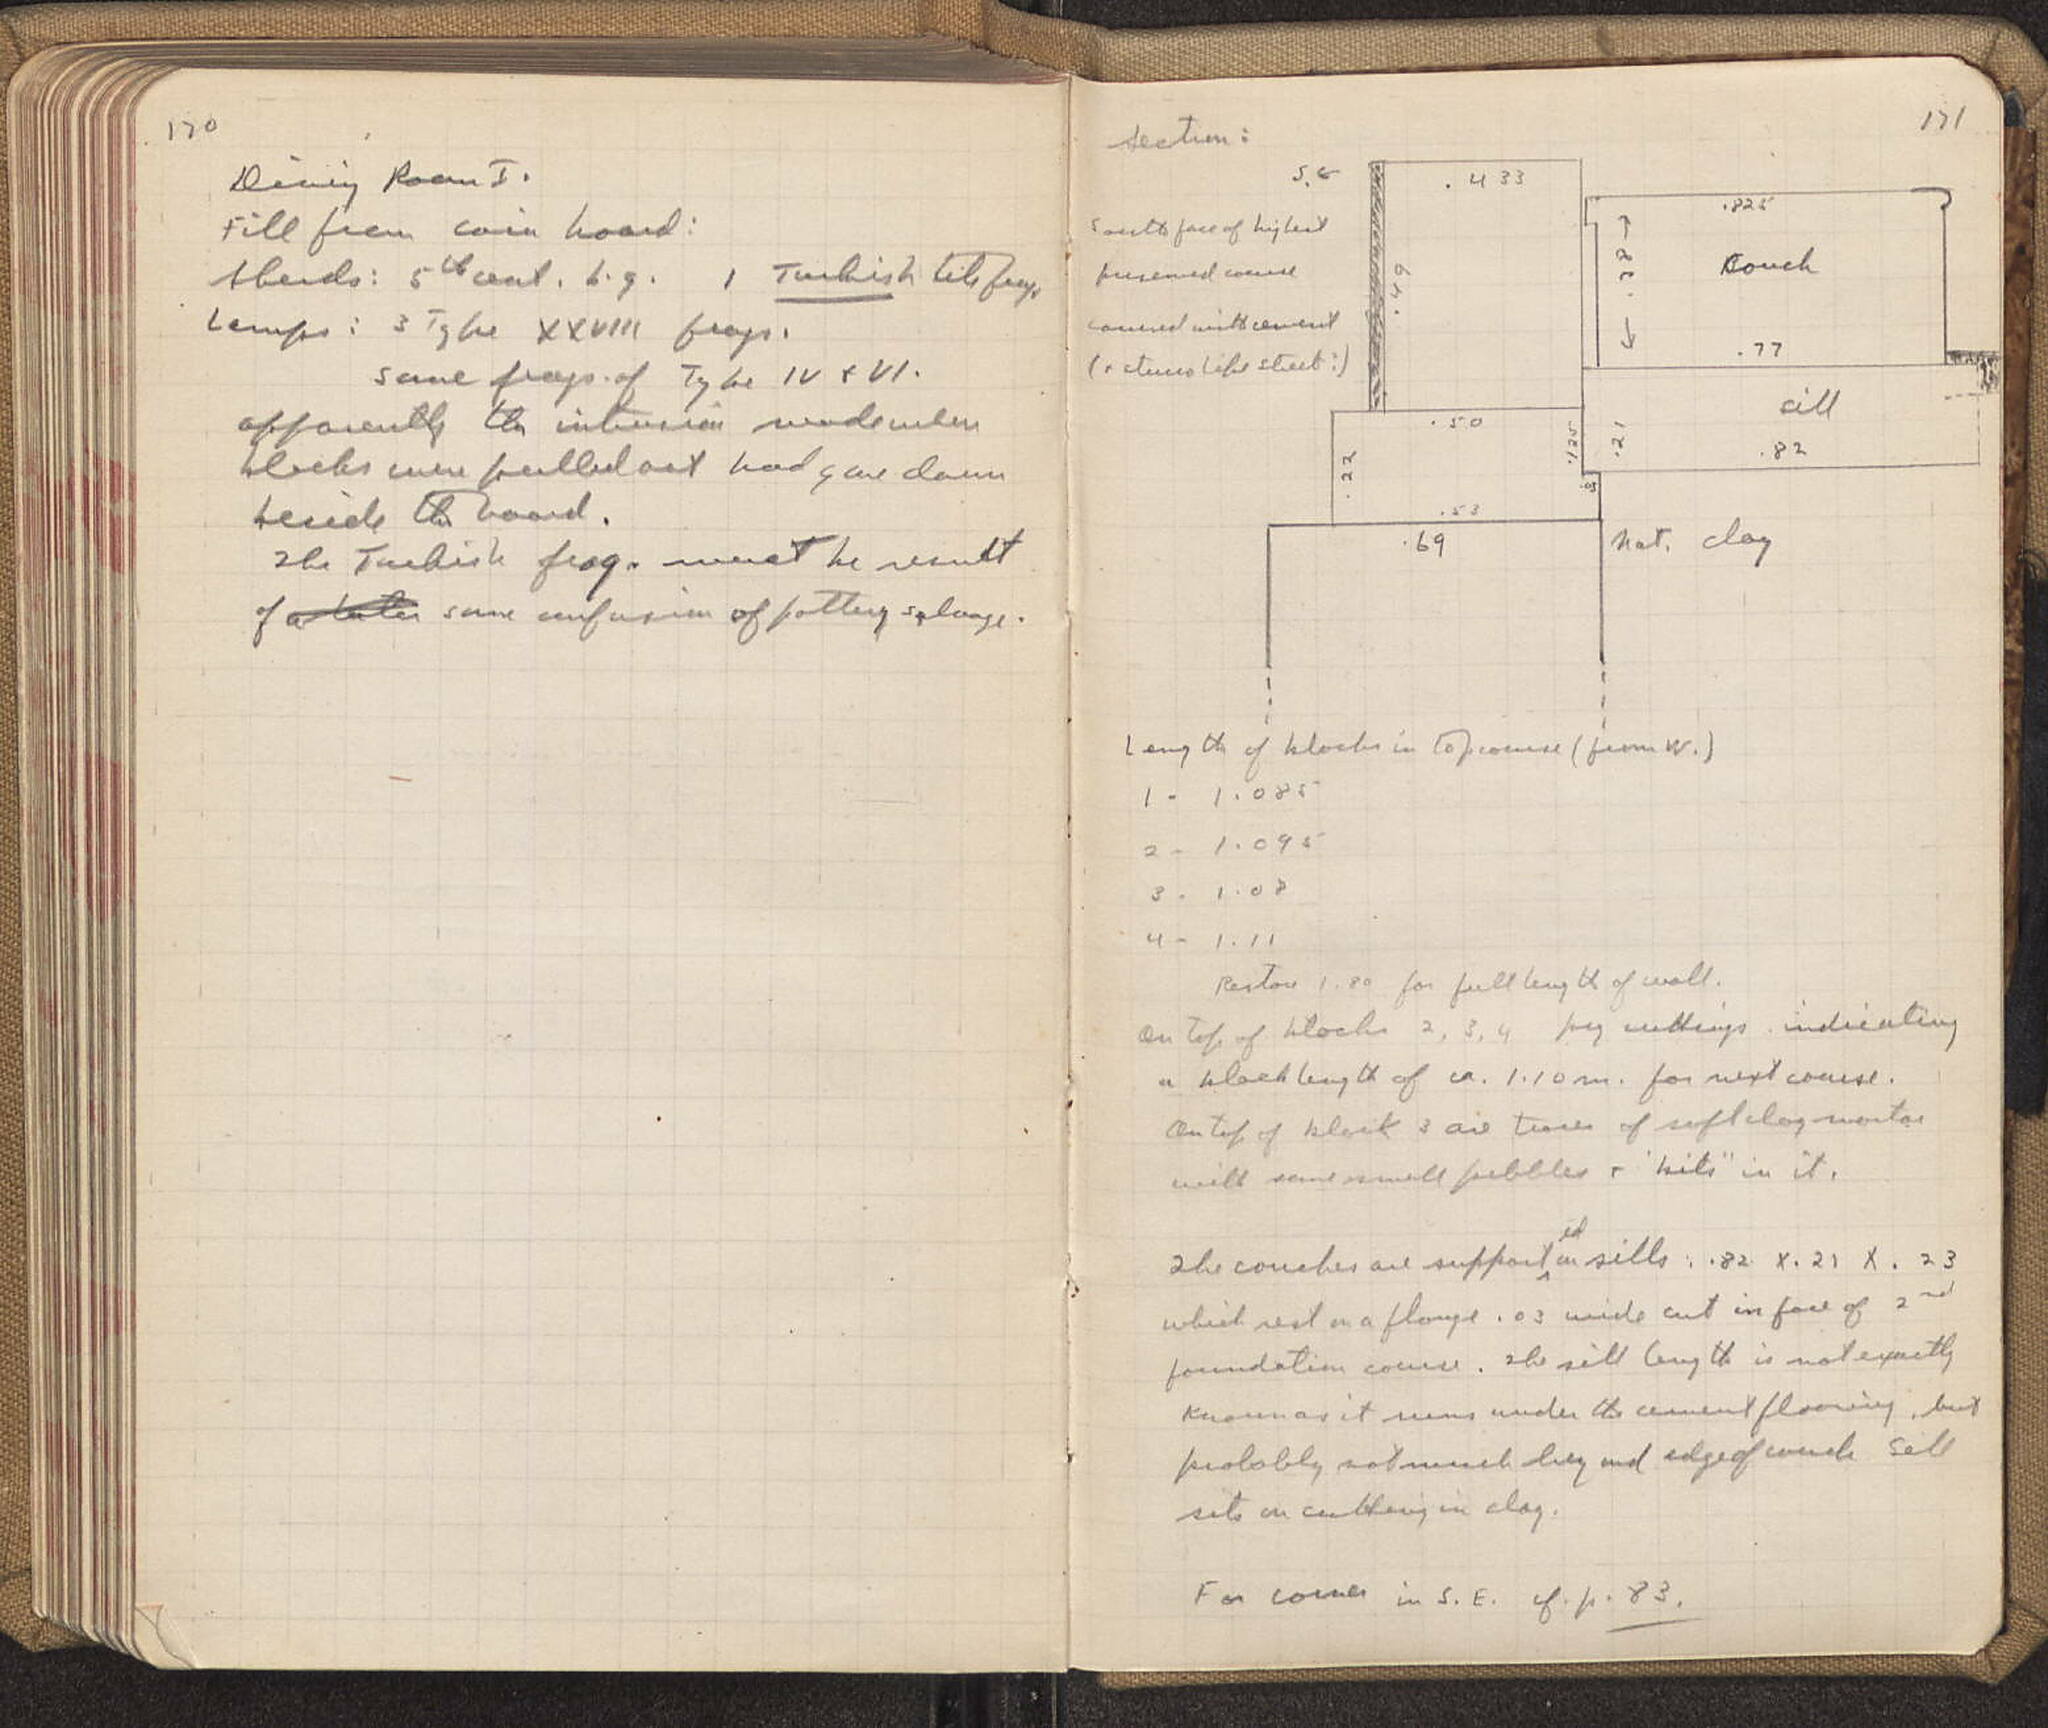 170
Dining Room I.
Fill from coin hoard:
Sherds: 5th cent. b.g. 1 Turkish tile frag.
Lamps: 3 Type XXVIII frags.
some frags. of Type IV + VI.
apparently the intrusion made when
blocks were pulled out had gone down
beside the hoard.
The Turkish frag. must be result
of a later some confusion of pottery
171
Section:
.433
South face of highest
preserved course
covered with cement
.49
.825
.38
Couch
.77
.50
.125
.22
.53
.21
sill
.82
.03
.69
Nat. clay
Length of blocks in top course (from W.)
1 - 1.085
2 - 1.095
3 - 1.08
4 - 1.11
Restore 1.80 for full length of wall.
On top of blocks 2, 3, 4 pry cuttings indicating
a block length of ca. 1.10 m. for next course.
On top of block 3 are traces of soft clay mortar
with some small pebbles + "bits" in it.
The couches are supported on sills: .82 x .21 x .23
which rest on a flange .03 wide cut in face of 2nd
foundation course. The sill length is not exactly
known as it runs under the cement flooring, but
probably not much beyond edge of couch. Sill
sits on cutting in clay.
For corner in S.E. cf. p. 83.